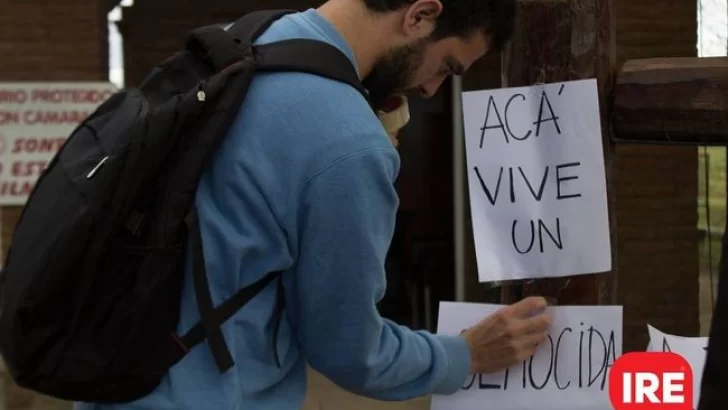 RIO PROTEGIDO
ON CAMARA
SON
ESTA
ACÁ
VIVE
UN
GENOCIDA
IRE